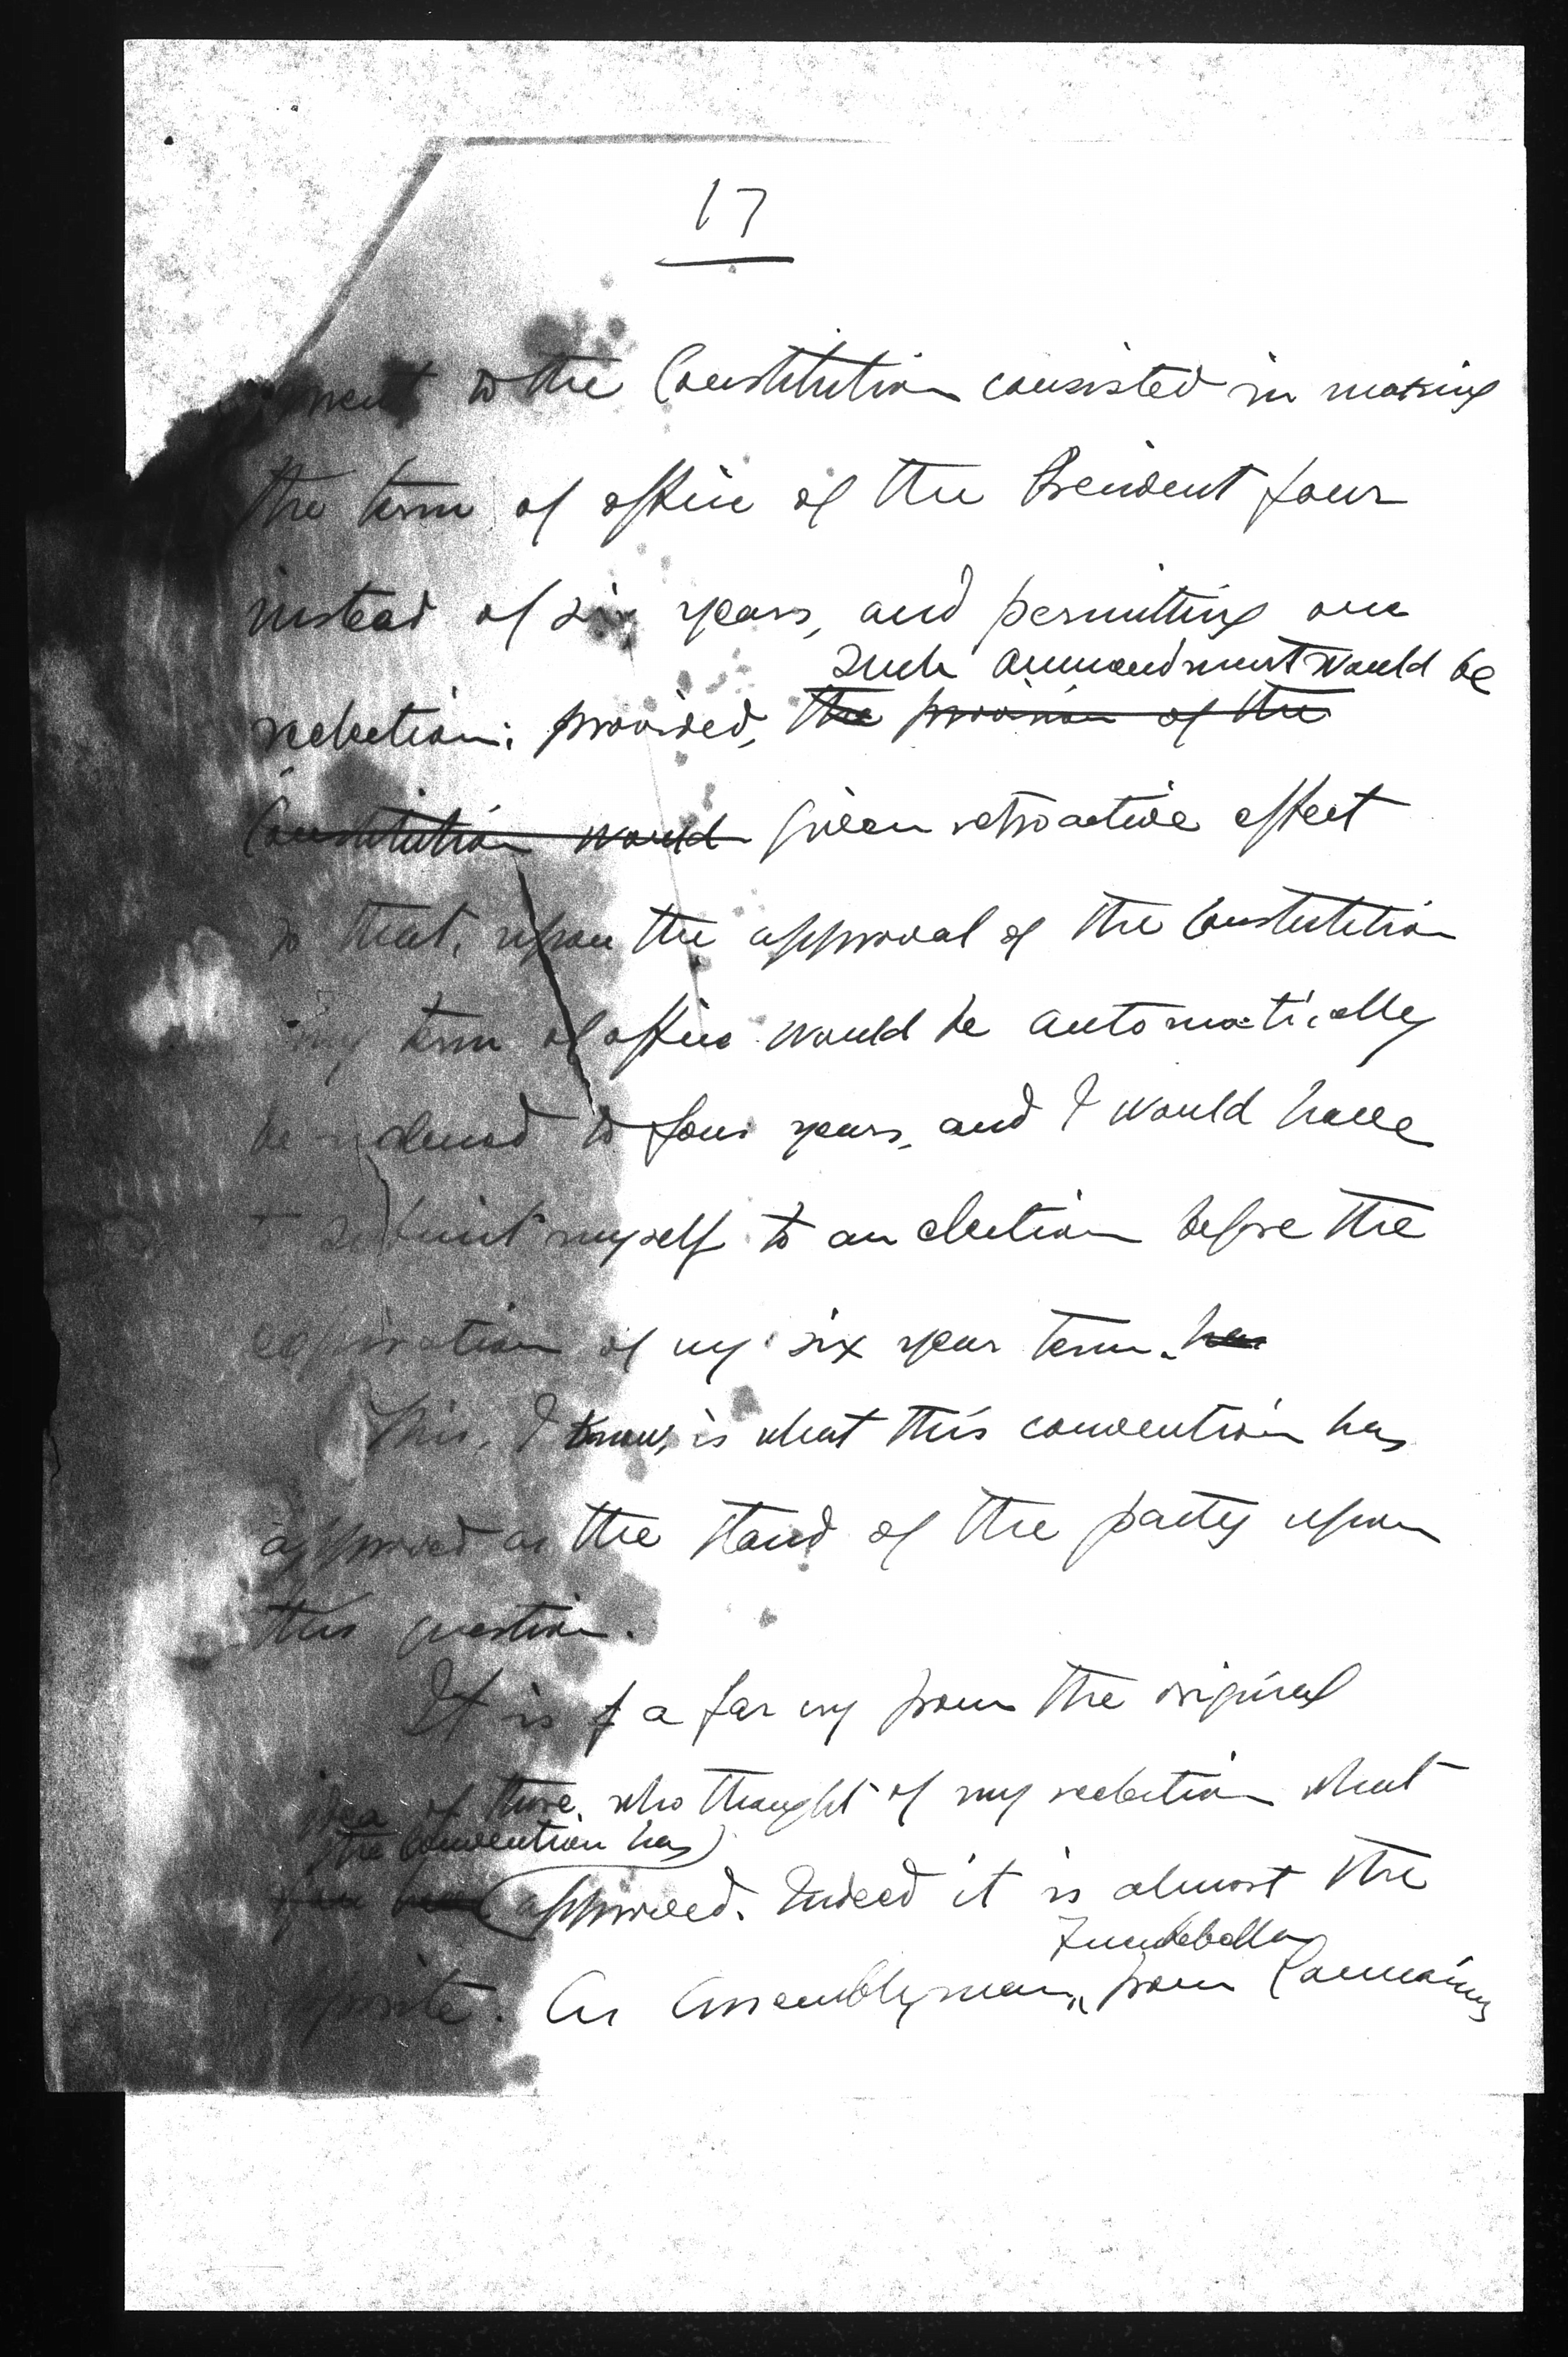 17
ment to the Constitution consisted in making
the term of office of the President four
instead of six years, and permitting one
such ammendment would be
reelection; provided, the provision of the
Constitution would given retroactive effect
so that, upon the approval of the Constitution
my term of office would be automatically
be reduced to four years, and I would have
to submit myself to an election before the
expiration of my six year term. has
This, I know, is what this convention has
approved as the stand of the party upon
this question.
It is f a far cry from the original
idea of those who thought of my reelection what
the Convention has
you have approved. Indeed it is almost the
opposite. An Assemblyman, from Camarines